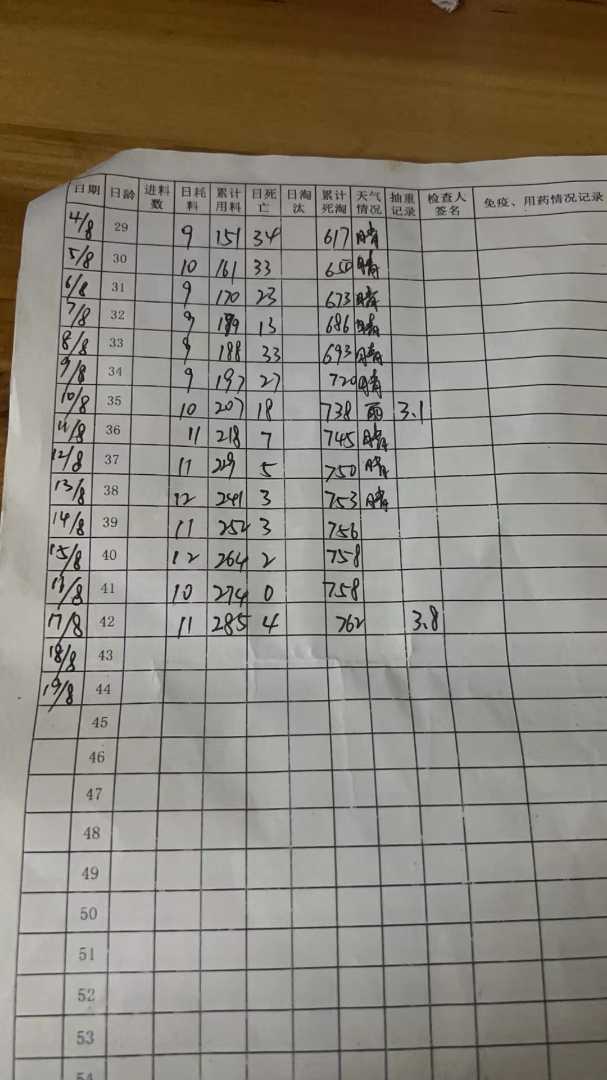 日期 日龄 进料数 日耗料 累计用料 日死亡 日淘汰 累计死淘 天气情况 抽重记录 检查人签名 免疫、用药情况记录
4/8 29 9 151 34 617 晴
5/8 30 10 161 33 650 晴
6/8 31 9 170 23 673 晴
7/8 32 9 179 13 686 晴
8/8 33 9 188 33 693 晴
9/8 34 9 197 27 720 晴
10/8 35 10 207 18 738 雨 3.1
11/8 36 11 218 7 745 晴
12/8 37 11 229 5 750 晴
13/8 38 12 241 3 753 晴
14/8 39 11 252 3 756
15/8 40 12 264 2 758
41 10 274 0 758
17/8 42 11 285 4 762 3.8
18/8 43
19/8 44
45
46
47
48
49
50
51
52
53
54